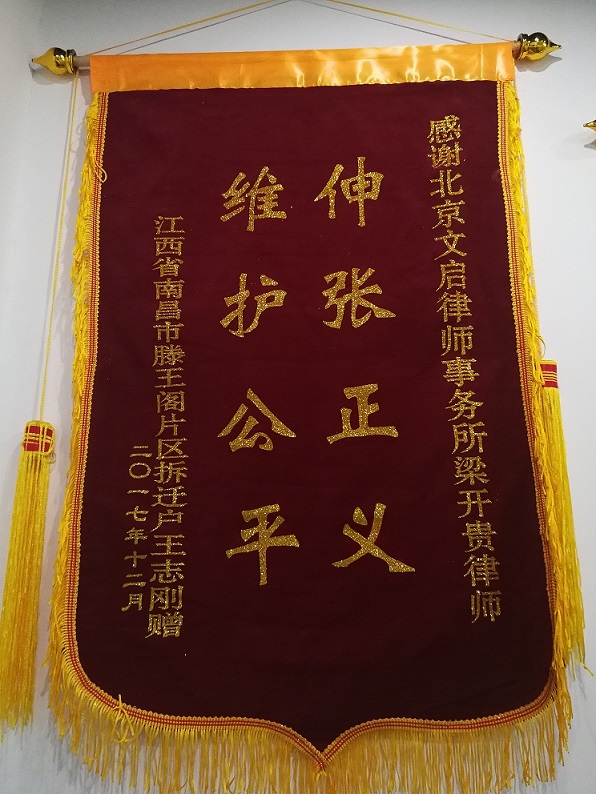 感谢北京文启律师事务所梁开贵律师
伸张正义
维护公平
江西省南昌市滕王阁片区拆迁户王志刚赠
二〇一七年十二月